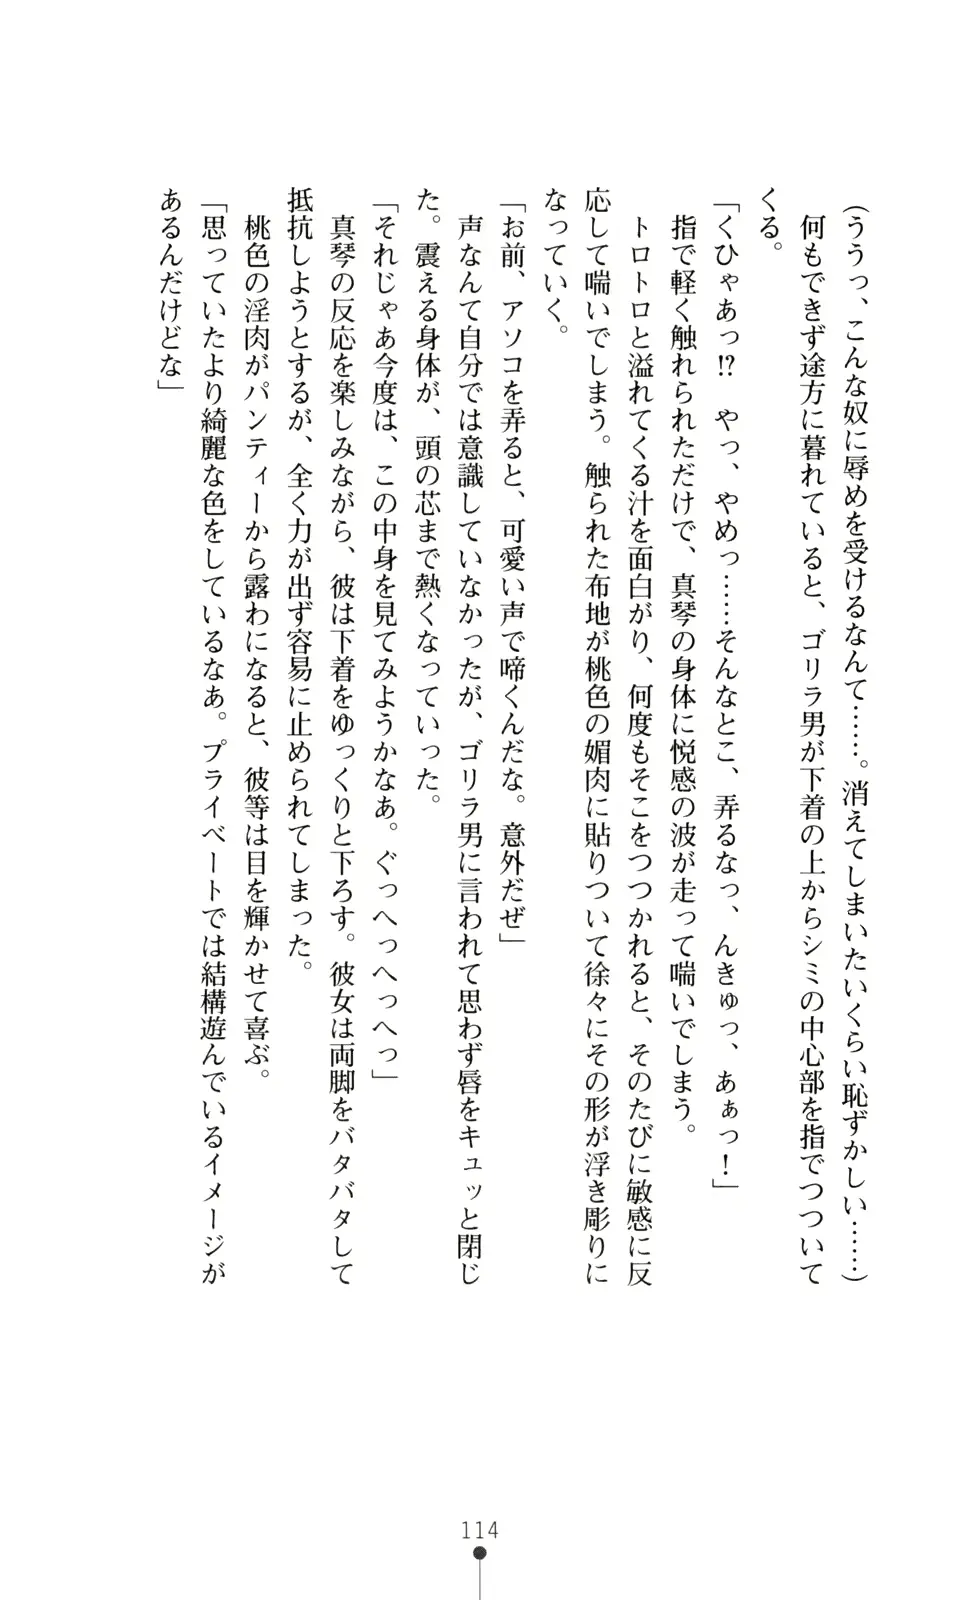 (ううっ、こんな奴に辱めを受けるなんて……。消えてしまいたいくらい恥ずかしい……)
　何もできず途方に暮れていると、ゴリラ男が下着の上からシミの中心部を指でつついて
くる。
「くひゃあっ!?　やっ、やめっ……そんなとこ、弄るなっ、んきゅっ、あぁっ！」
　指で軽く触れられただけで、真琴の身体に悦感の波が走って喘いでしまう。
　トロトロと溢れてくる汁を面白がり、何度もそこをつつかれると、そのたびに敏感に反
応して喘いでしまう。触られた布地が桃色の媚肉に貼りついて徐々にその形が浮き彫りに
なっていく。
「お前、アソコを弄ると、可愛い声で啼くんだな。意外だぜ」
　声なんて自分では意識していなかったが、ゴリラ男に言われて思わず唇をキュッと閉じ
た。震える身体が、頭の芯まで熱くなっていった。
「それじゃあ今度は、この中身を見てみようかなぁ。ぐっへっへっへっ」
　真琴の反応を楽しみながら、彼は下着をゆっくりと下ろす。彼女は両脚をバタバタして
抵抗しようとするが、全く力が出ず容易に止められてしまった。
　桃色の淫肉がパンティーから露わになると、彼等は目を輝かせて喜ぶ。
「思っていたより綺麗な色をしているなぁ。プライベートでは結構遊んでいるイメージが
あるんだけどな」
114